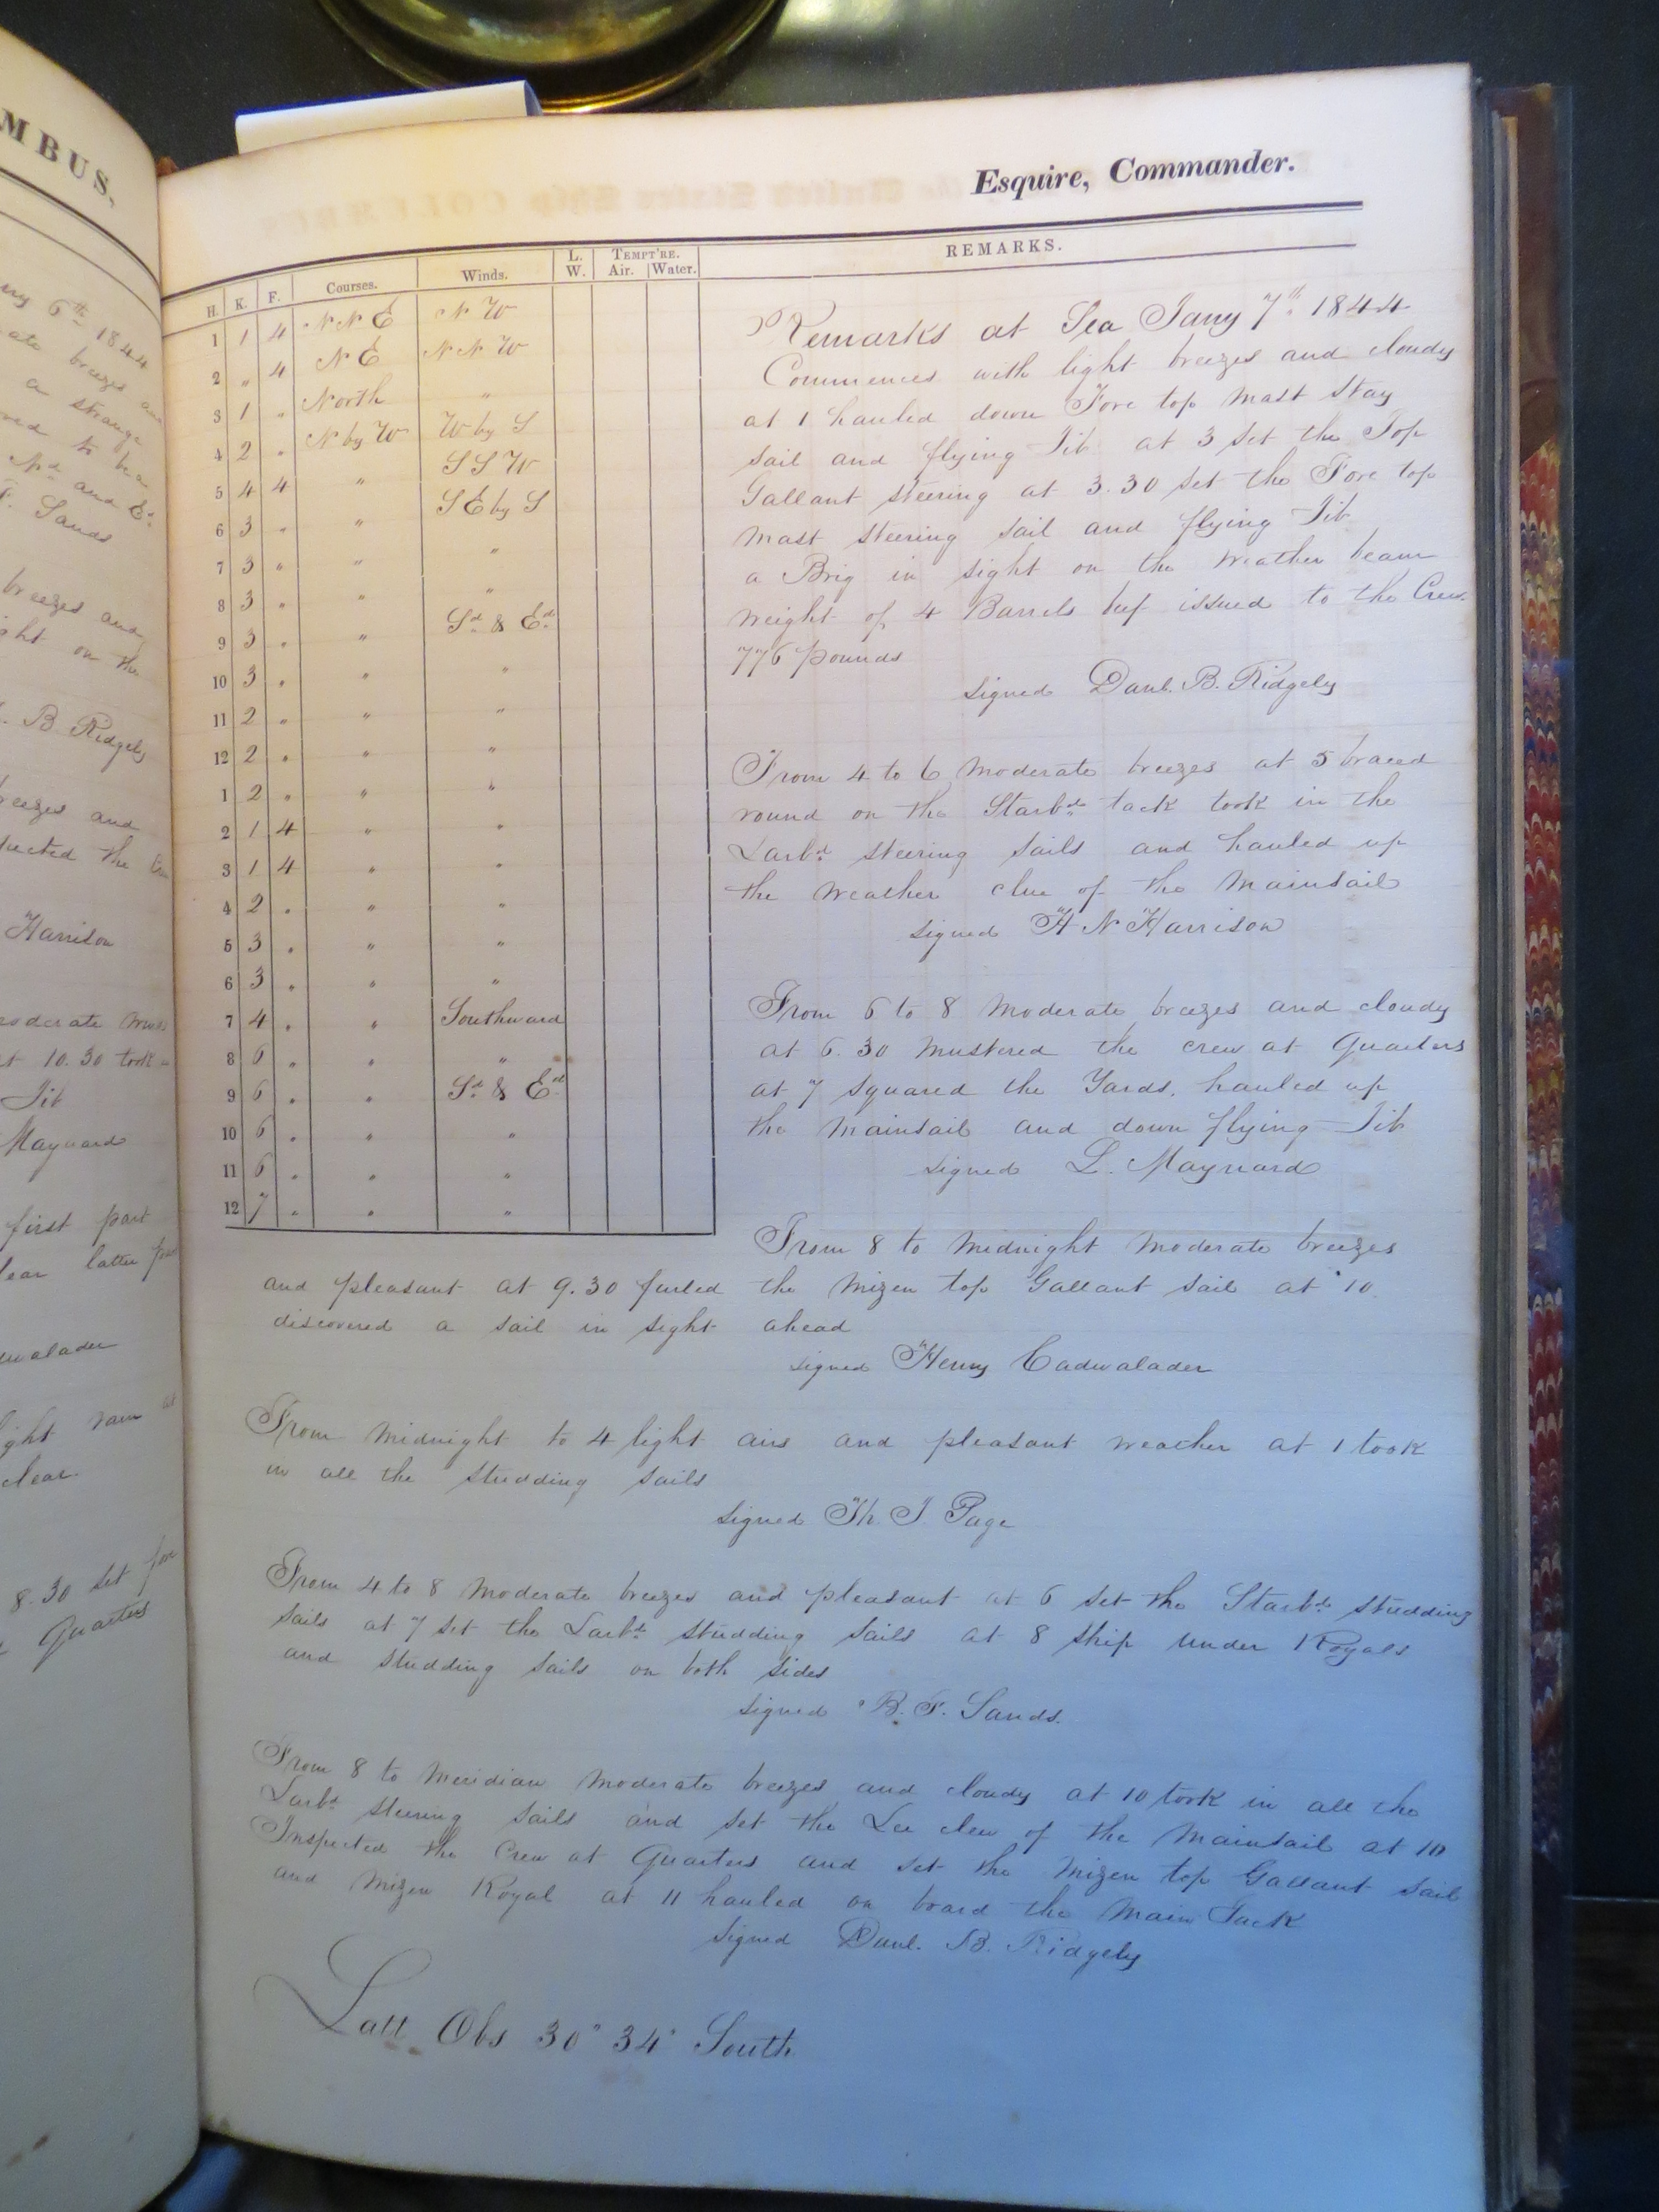 MBUS,
6th 1844
breezes and
a strange
to be a
Nd and Ed
F. Sands
breezes and
on the
B Ridgely
and
the
Harrison
moderate
at 10.30 took
Jib
Maynard
first part
latter
rain
clear
8.30 set fore
Quarters
Esquire, Commander.
H. K. F. Courses. Winds. L. W. TEMPT'RE. Air. Water. REMARKS.
1 1 4 N N E N W
2 " 4 N E N N W
3 1 " North "
4 2 " N by W W by S
5 4 4 " S S W
6 3 " " S E by S
7 3 " " "
8 3 " " "
9 3 " " Sd & Ed
10 3 " " "
11 2 " " "
12 2 " " "
1 2 " " "
2 1 4 " "
3 1 4 " "
4 2 " " "
5 3 " " "
6 3 " " "
7 4 " " Southward
8 6 " " "
9 6 " " Sd & Ed
10 6 " " "
11 6 " " "
12 7 " " "
Remarks at Sea Jany 7th 1844
Commences with light breezes and cloudy
at 1 hauled down Fore top Mast Stay
sail and flying Jib at 3 set the Top
Gallant steering at 3.30 set the Fore top
mast steering sail and flying Jib
a Brig in sight on the weather beam
weight of 4 Barrels beef issued to the Crew
776 pounds
signed Danl. B. Ridgely
From 4 to 6 moderate breezes at 5 braced
round on the Starbd tack took in the
Larbd steering sails and hauled up
the weather clue of the mainsail
signed H N Harrison
From 6 to 8 moderate breezes and cloudy
at 6.30 mustered the crew at Quarters
at 7 squared the Yards, hauled up
the mainsail and down flying Jib
signed L. Maynard
From 8 to midnight moderate breezes
and pleasant at 9.30 furled the Mizen top Gallant sail at 10
discovered a sail in sight ahead
signed Henry Cadwalader
From midnight to 4 light airs and pleasant weather at 1 took
in all the studding sails
signed Th J Page
From 4 to 8 moderate breezes and pleasant at 6 set the Starbd studding
sails at 7 set the Larbd studding sails at 8 ship under Royals
and studding sails on both sides
signed B. F. Sands.
From 8 to Meridian moderate breezes and cloudy at 10 took in all the
Larbd steering sails and set the Lee clew of the mainsail at 10
Inspected the Crew at Quarters and set the Mizen top Gallant sail
and Mizen Royal at 11 hauled on board the Main Tack
signed Danl. B. Ridgely
Latt Obs 30° 34' South